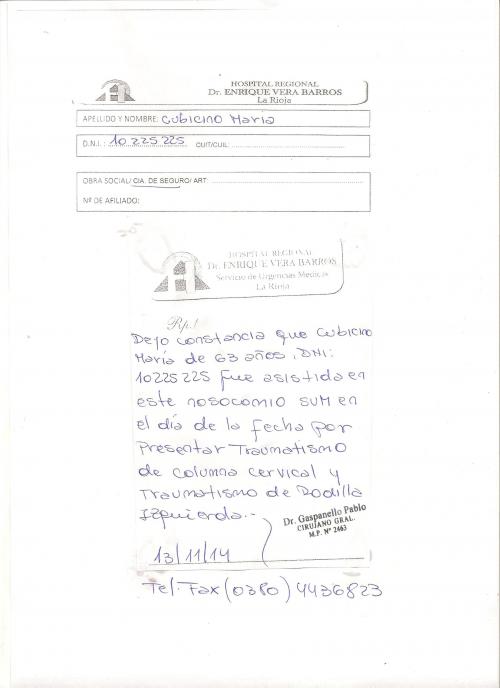 HOSPITAL REGIONAL
Dr. ENRIQUE VERA BARROS
La Rioja
APELLIDO Y NOMBRE: Cubicino Maria
D.N.I.: 10225225 CUIT/CUIL:
OBRA SOCIAL/ CIA. DE SEGURO/ ART:
Nº DE AFILIADO:
HOSPITAL REGIONAL
Dr. ENRIQUE VERA BARROS
Servicio de Urgencias Medicas
La Rioja
Rp./
Dejo constancia que Cubicino
María de 63 años, DNI:
10225225 fue asistida en
este nosocomio SUM en
el día de la fecha por
Presentar Traumatismo
de columna cervical y
Traumatismo de Rodilla
Izquierda.-
Dr. Gaspanello Pablo
CIRUJANO GRAL.
M.P. Nº 2463
13/11/14
Tel. Fax (0380) 4436823